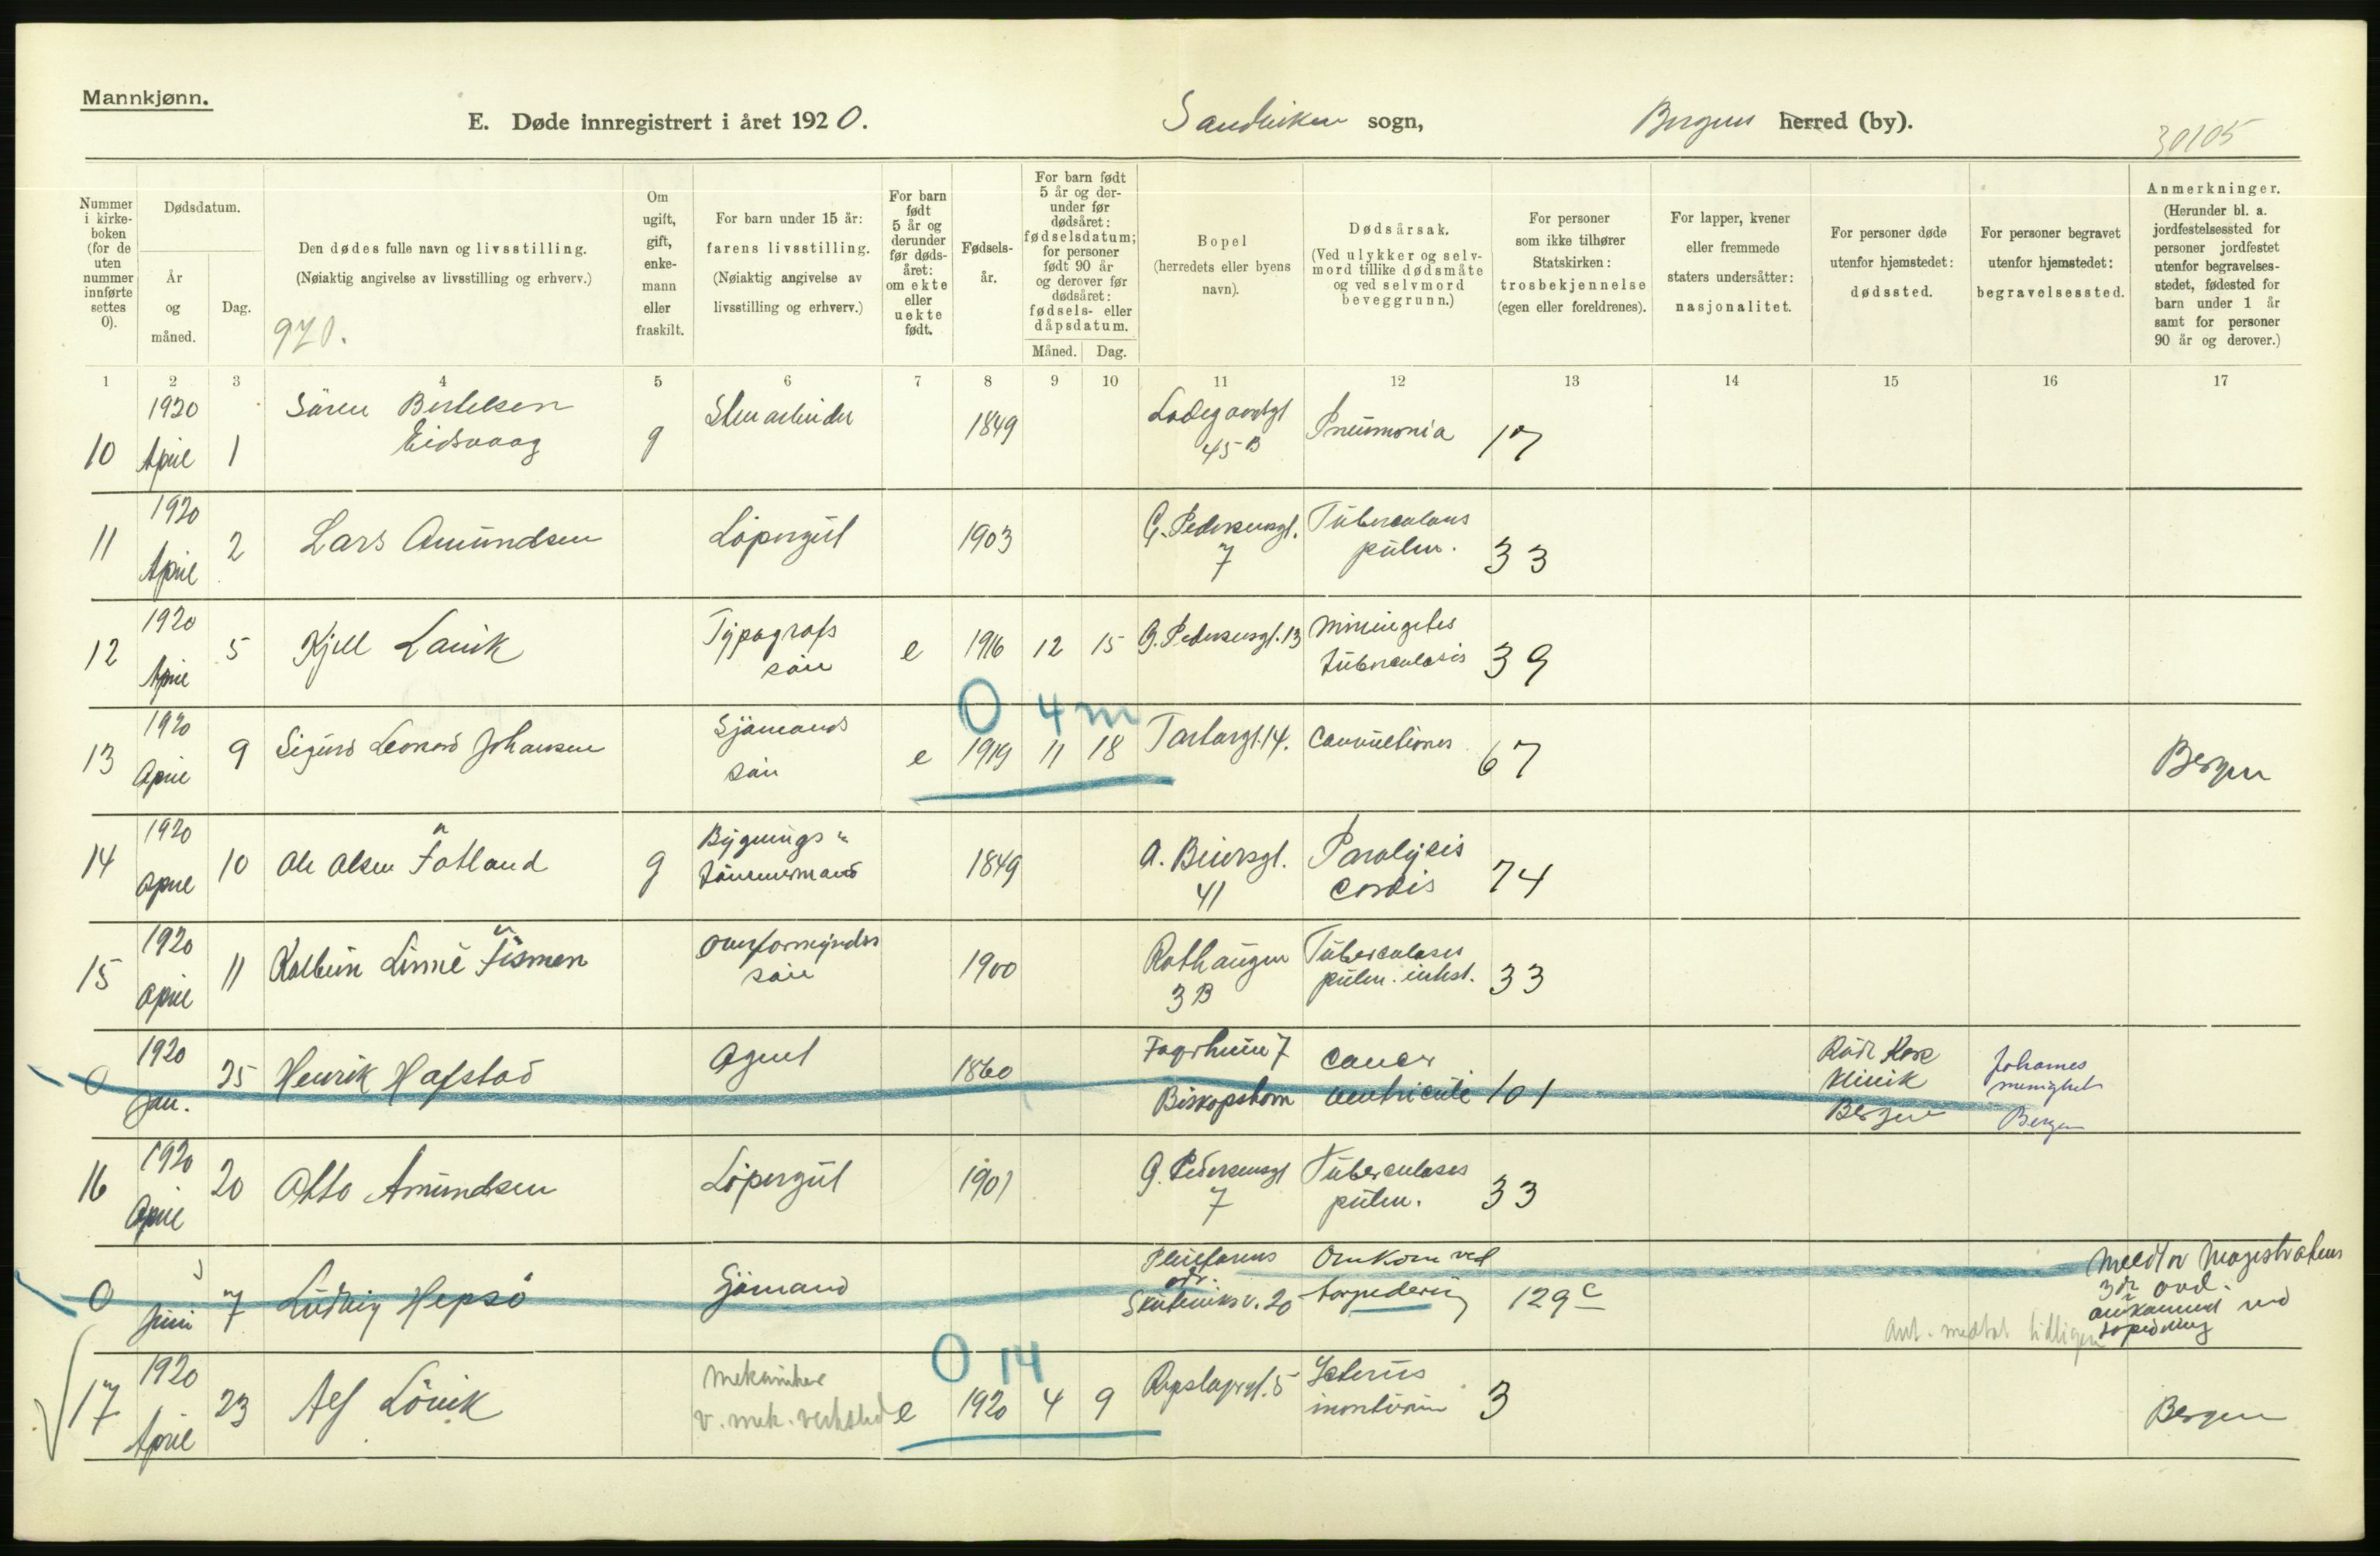 Mannkjønn.
E. Døde innregistrert i året 1920. Sandviken sogn, Bergens herred (by). 30105
Nummer i kirke-boken (for de uten nummer innførte settes 0).
Dødsdatum.
År og måned.
Dag.
Den dødes fulle navn og livsstilling.
(Nøiaktig angivelse av livsstilling og erhverv.)
970.
Om ugift, gift, enke-mann eller fraskilt.
For barn under 15 år:
farens livsstilling.
(Nøiaktig angivelse av livsstilling og erhverv.)
For barn født 5 år og derunder før døds-året: om ekte eller uekte født.
Fødsels-år.
For barn født 5 år og der-under før dødsåret: fødselsdatum; for personer født 90 år og derover før dødsåret: fødsels- eller dåpsdatum.
Måned. Dag.
Bopel
(herredets eller byens navn).
Dødsårsak.
(Ved ulykker og selv-mord tillike dødsmåte og ved selvmord beveggrunn.)
For personer som ikke tilhører Statskirken: trosbekjennelse (egen eller foreldrenes).
For lapper, kvener eller fremmede staters undersåtter: nasjonalitet.
For personer døde utenfor hjemstedet: dødssted.
For personer begravet utenfor hjemstedet: begravelsessted.
Anmerkninger.
(Herunder bl. a. jordfestelsessted for personer jordfestet utenfor begravelses-stedet, fødested for barn under 1 år samt for personer 90 år og derover.)
1 2 3 4 5 6 7 8 9 10 11 12 13 14 15 16 17
10 1920 April 1 Sören Bertelsen Eidsvaag g Stenarbeider 1849 Ladegaardsgt 45 B Pneumonia 17
11 1920 April 2 Lars Amundsen Löpergut 1903 G. Pedersensgt. 7 Tuberculosis pulm. 33
12 1920 April 5 Kjell Lavik Typografs sön e 1916 12 15 G. Pedersensgt. 13 Miningetes tuberculosis 39
0 4 m
13 1920 April 9 Sigurd Leonard Johansen Sjömands sön e 1919 11 18 Tartargt. 14. Convultiones 67 Bergen
14 1920 April 10 Ole Olsen Fatland g Bygnings tömmermand 1849 A. Beiersgt. 41 Paralysis cordis 74
15 1920 April 11 Kolbein Linné Fismen Overformynders sön 1900 Rothaugen 3 B Tuberculoses pulm. intest. 33
0 1920 Jan. 25 Henrik Hafstad Agent 1860 Fagerheim 7 Biskopshavn Cancer ventriculi 101 Röde Kors Klinik Bergen Johannes menighet Bergen
16 1920 April 20 Otto Amundsen Löpergut 1901 G. Pedersensgt 7 Tuberculoses pulm. 33
0 Juni 7 Ludvig Hepsö Sjömand Skuteviksv. 20 Omkom ved torpedering 129 c Meldt av Magistratens 3die avd. omkommet ved
Ant. medtat tidligere
0 14
17 1920 April 23 Alf Lövik Mekaniker v. mek. verksted e 1920 4 9 Repslagergt. 5 Icterus 3 Bergen